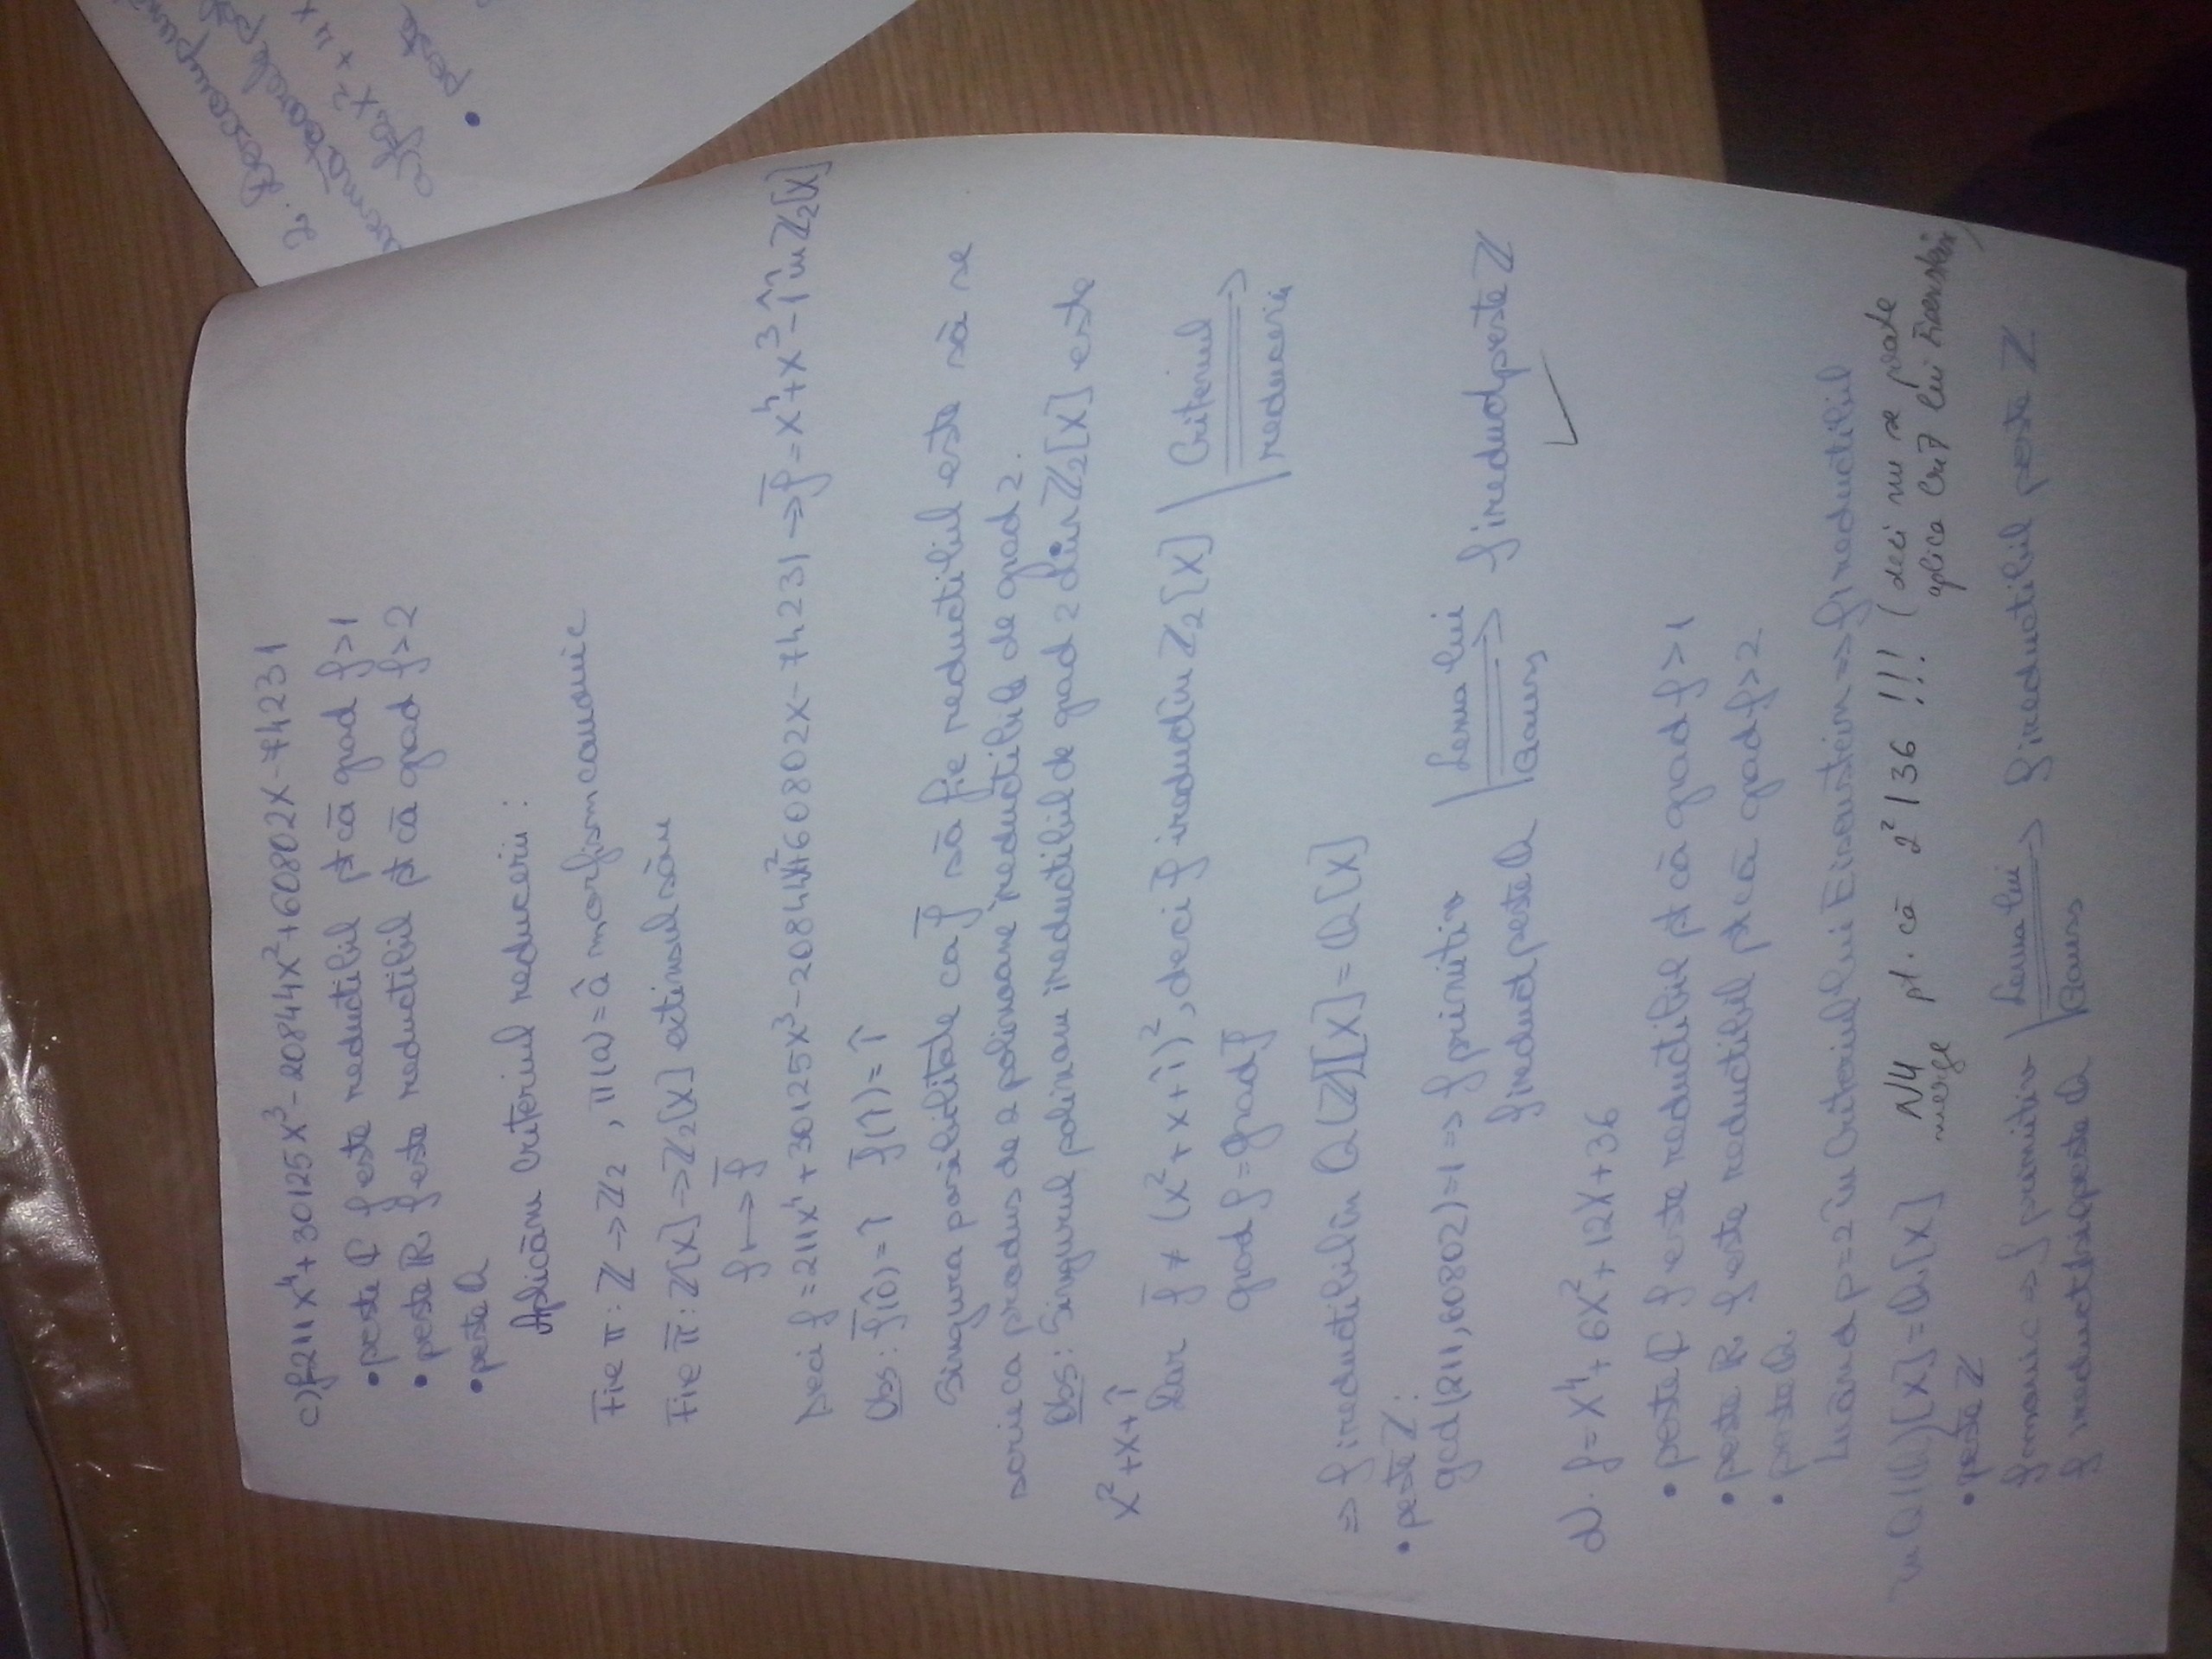 2. Descompun
următoarele p
a) f= X² + 4X
• peste
c) f=211X⁴+30125X³-20844X²+60802X-74231
• peste ℂ f este reductibil pt că grad f>1
• peste ℝ f este reductibil pt că grad f>2
• peste ℚ
Aplicăm Criteriul reducerii:
Fie π: ℤ → ℤ₂ , π(a)=â morfism canonic
Fie π̄: ℤ[X] → ℤ₂[X] extinsul său
f ↦ f̄
Deci f=211X⁴+30125X³-20844X²+60802X-74231 → f̄=X⁴+X³-1̂ în ℤ₂[X]
Obs: f̄(0̂)=1̂ f̄(1̂)=1̂
Singura posibilitate ca f̄ să fie reductibil este să se
scrie ca produs de 2 polinoame ireductibile de grad 2.
Obs: Singurul polinom ireductibil de grad 2 din ℤ₂[X] este
X²+X+1̂
Dar f̄ ≠ (X²+X+1̂)², deci f̄ ireduc în ℤ₂[X] | Criteriul ⟹ reducerii
grad f = grad f̄
⇒ f ireductibil în Q(ℤ)[X] = ℚ[X]
• peste ℤ:
gcd(211,60802)=1 ⇒ f primitiv | Lema lui ⟹ Gauss f ireduct peste ℤ
f ireduct peste ℚ
✓
d). f= X⁴+6X²+12X+36
• peste ℂ f este reductibil pt că grad f>1
• peste ℝ f este reductibil pt că grad f>2
• peste ℚ
Luând p=2 în Criteriul lui Eisenstein ⇒ f ireductibil
în Q(ℚ)[X]=ℚ[X] NU merge pt. că 2² | 36 !!! (deci nu se poate
aplica Crit lui Eisenstein)
• peste ℤ
f monic ⇒ f primitiv | Lema lui ⟹ Gauss f ireductibil peste ℤ
f ireductibil peste ℚ